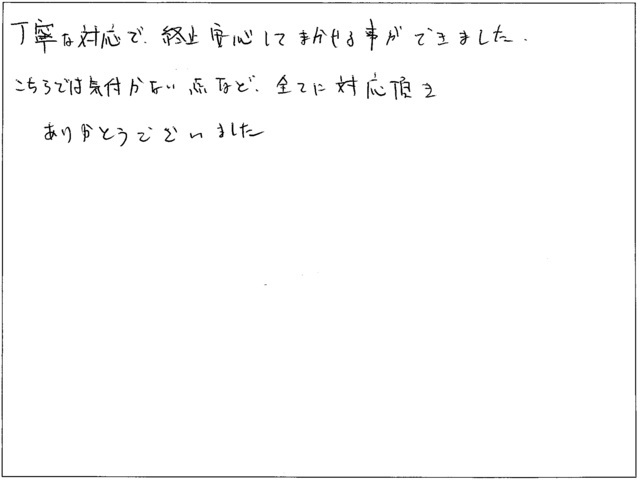 丁寧な対応で、終止安心してまかせる事ができました.
こちらでは気付かない点など、全てに対応頂き
ありがとうございました